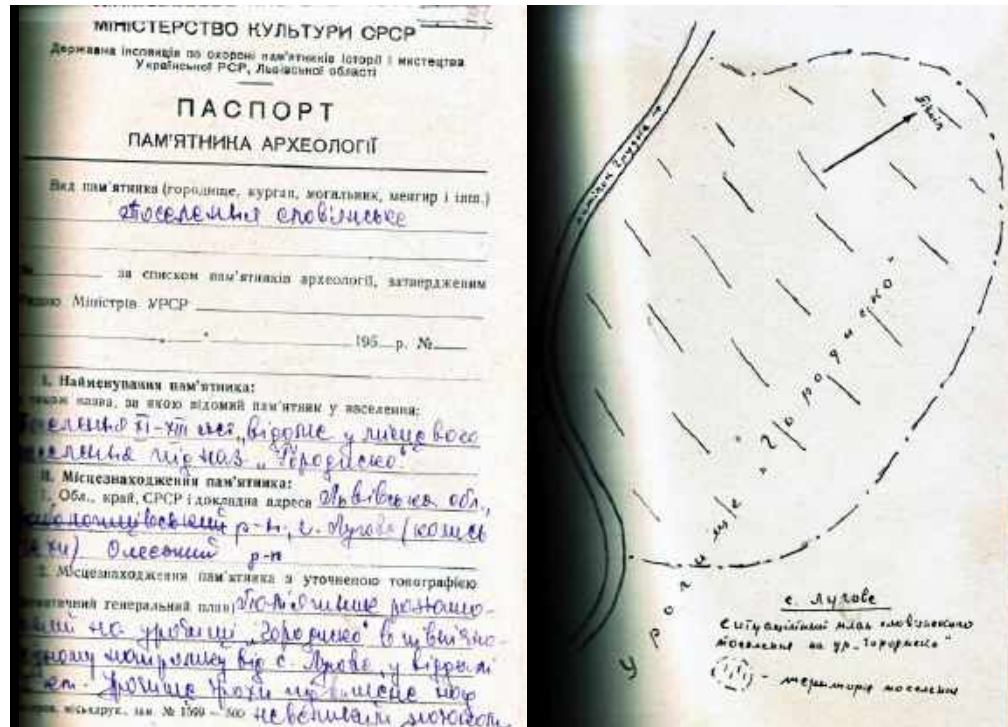 МІНІСТЕРСТВО КУЛЬТУРИ СРСР
Державна інспекція по охороні пам'ятників історії і мистецтва
Української РСР, Львівської області
ПАСПОРТ
ПАМ'ЯТНИКА АРХЕОЛОГІЇ
Вид пам'ятника (городище, курган, могильник, менгир і інш.)
Поселення слов'янське
за списком пам'ятників археології, затвердженим
Міністрів УРСР
195 р. №
І. Найменування пам'ятника:
назва, за якою відомий пам'ятник у населення:
XI-XIII ст. відоме у місцевого
під наз „Городисько"
ІІ. Місцезнаходження пам'ятника:
1. Обл., край, СРСР і докладна адреса Львівська обл.,
р-н, с. Лугове (колись
Олеський р-н
2. Місцезнаходження пам'ятника з уточненою топографією
генеральний план) Пам'ятник розташо-
на урочищі „Городисько" в північно-
напрямку від с. Лугове, у віддалі
Урочище трохи підвищене над
зам. № 1599 – 500
Північ
Урочище „Городисько"
с. Лугове
Ситуаційний план слов'янського
поселення на ур. „Городисько"
- територія поселення